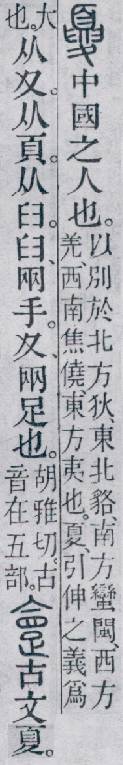 夏中國之人也。以別於北方狄、東北貉、南方蠻閩、西方羌、西南焦僥、東方夷也。夏、引伸之義爲
大也。从夊。从頁。从臼。臼、兩手。夊、兩足也。胡雅切。古音在五部。古文夏。